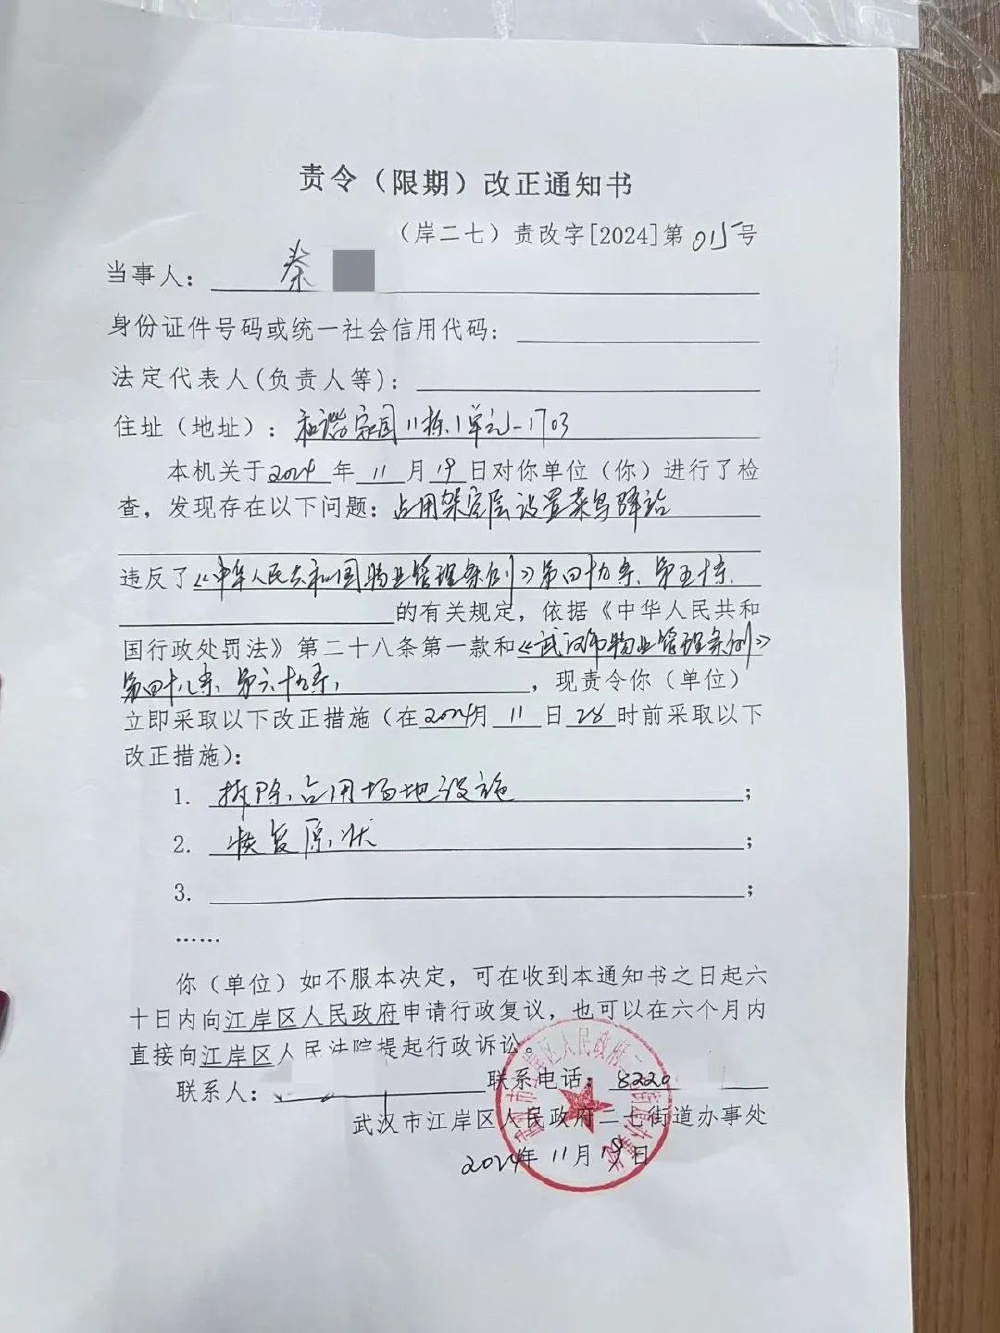 责令（限期）改正通知书
（岸二七）责改字[2024]第015号
当事人：秦
身份证件号码或统一社会信用代码：
法定代表人(负责人等)：
住址（地址）：和谐家园11栋1单元-1703
本机关于2024年11月19日对你单位（你）进行了检
查，发现存在以下问题：占用架空层设置菜鸟驿站
违反了《中华人民共和国物业管理条例》第四十九条、第五十条、
的有关规定，依据《中华人民共和
国行政处罚法》第二十八条第一款和《武汉市物业管理条例》
第四十八条、第六十九条，，现责令你（单位）
立即采取以下改正措施（在2024月11日28时前采取以下
改正措施）：
1. 拆除占用场地设施；
2. 恢复原状；
3. ；
……
你（单位）如不服本决定，可在收到本通知书之日起六
十日内向江岸区人民政府申请行政复议，也可以在六个月内
直接向江岸区人民法院提起行政诉讼。
联系人： 联系电话：8220
武汉市江岸区人民政府二七街道办事处
2024年11月19日